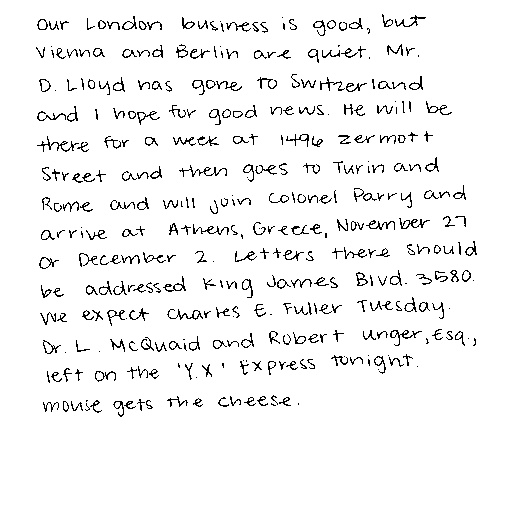 Our London business is good, but
Vienna and Berlin are quiet. Mr.
D. Lloyd has gone to Switzerland
and I hope for good news. He will be
there for a week at 1496 Zermott
Street and then goes to Turin and
Rome and will join Colonel Parry and
arrive at Athens, Greece, November 27
or December 2. Letters there should
be addressed King James Blvd. 3580.
We expect Charles E. Fuller Tuesday.
Dr. L. McQuaid and Robert Unger, Esq.,
left on the 'Y.X' Express tonight.
mouse gets the cheese.